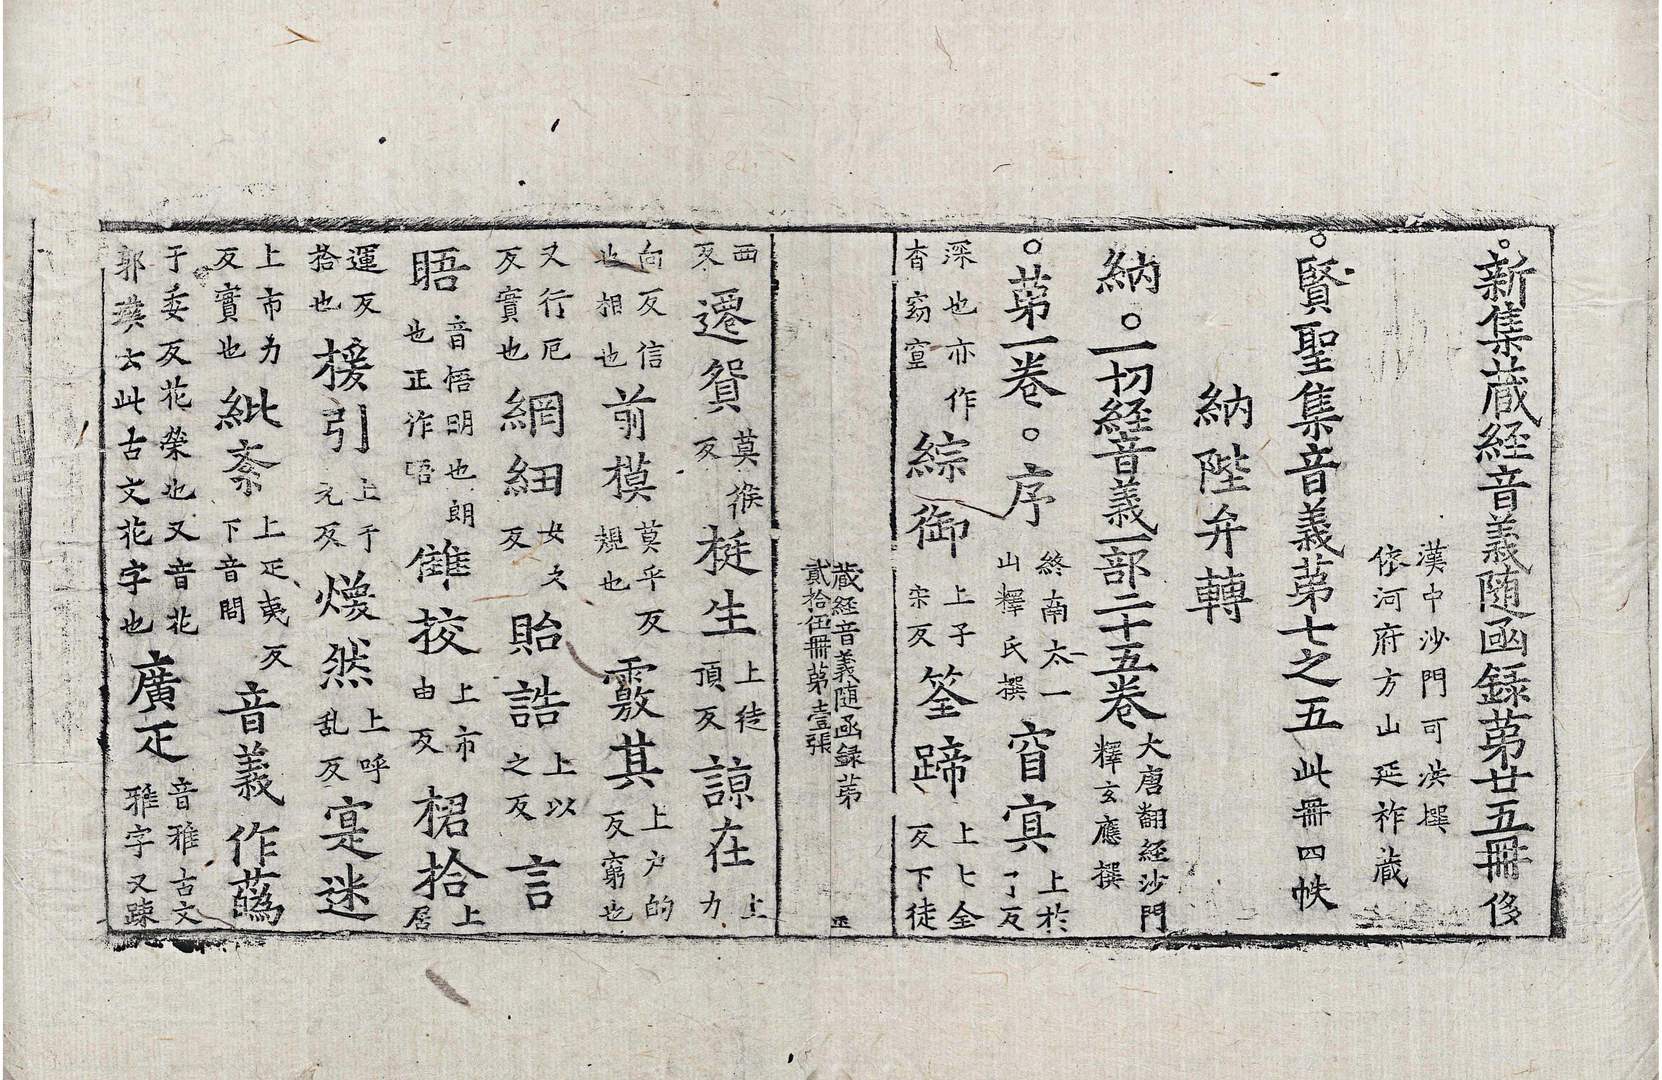 新集藏経音義随函録苐廿五冊侈
漢中沙門可洪撰
依河府方山延祚藏
賢聖集音義苐七之五此冊四帙
納陛弁轉
納。一切経音義一部二十五卷大唐翻経沙門釋玄應撰
苐一卷。序終南太一山釋氏撰窅㝠上於了反
深也亦作杳窈窒綜御上子宋反筌蹄上七全反下徒
藏経音義随函録苐
貳拾伍冊苐壹張
西反遷貿莫候反梃生上徒頂反諒在上力
向反信也相也前模莫乎反規也覈其上户的反窮也
又行厄反實也網紐女久反貽誥上以之反言
晤音悟明也朗也正作㫥雠挍上市由反捃拾上居
運反拾也援引上于元反煥然上呼乱反寔迷
上市力反實也紕紊上疋夷反下音問音義作蒍
于委反花榮也又音花郭璞云此古文花字也廣疋音雅古文雅字又踈